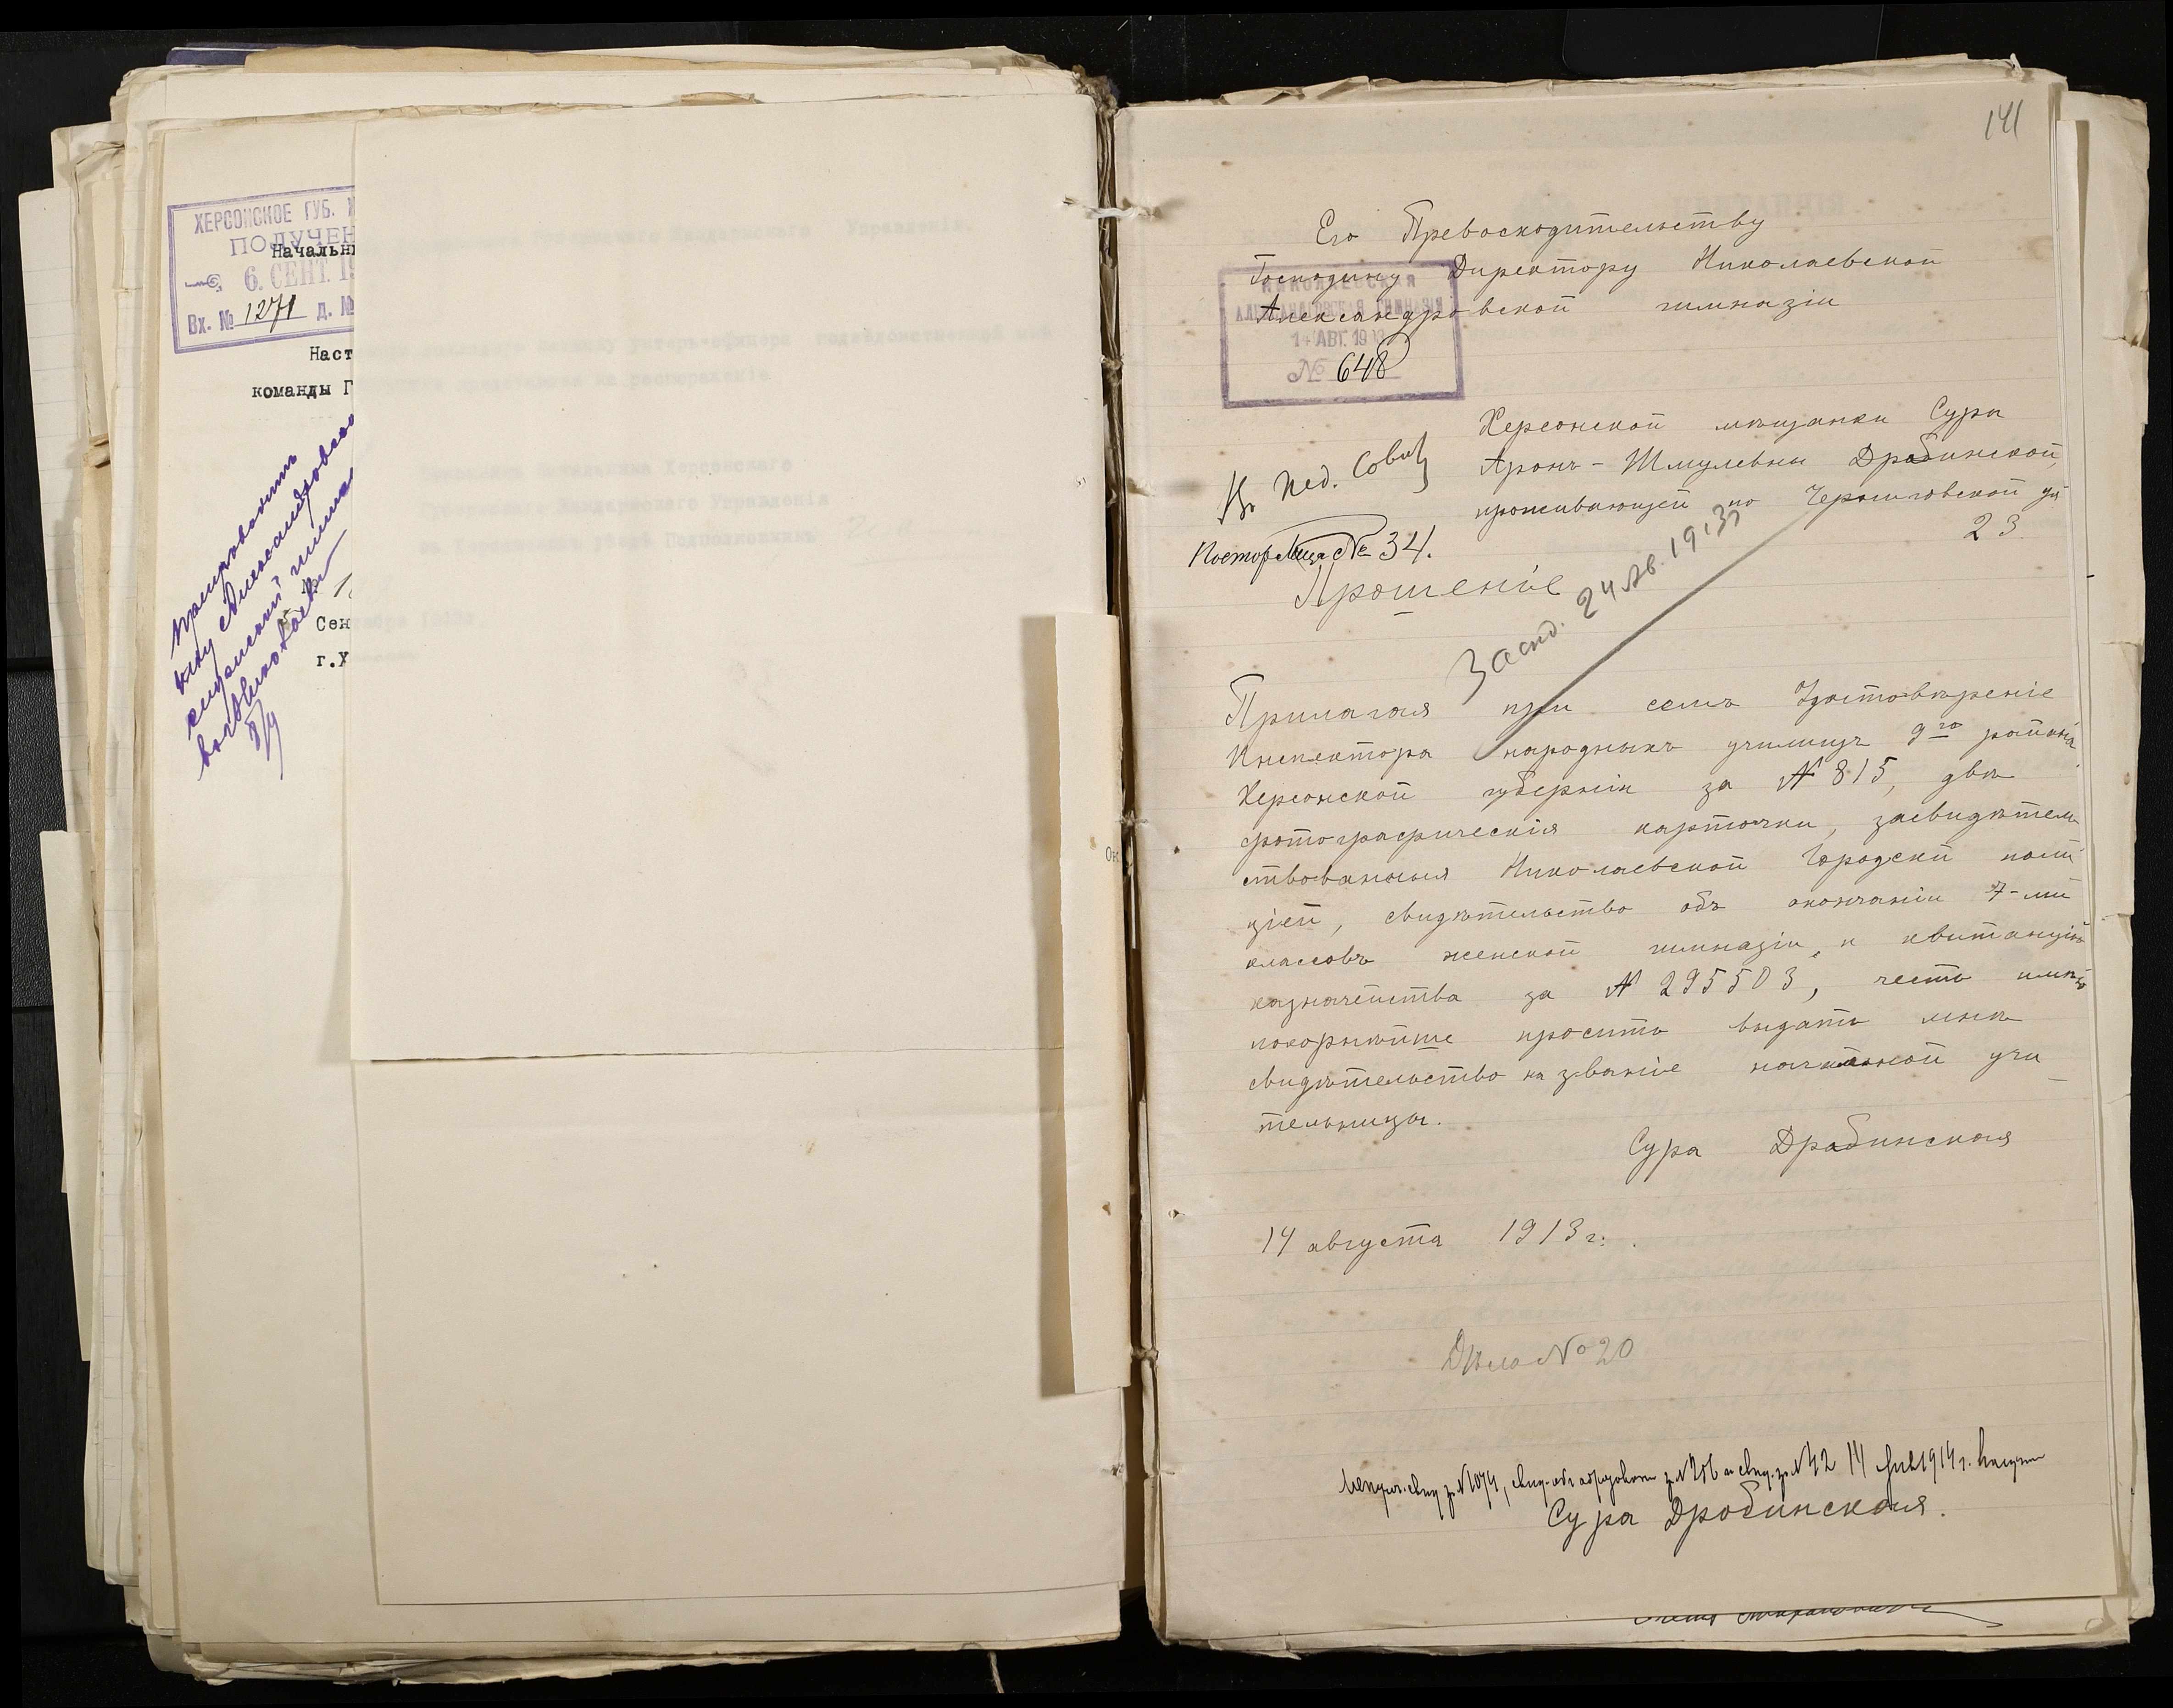 ХЕРСОНСКОЕ ГУБ.
ПОЛУЧЕН
Начальн
6. СЕНТ. 19
Вх. № 1271 д. №
Наст
команды Г
Сен
г.Х
141
Его Превосходительству
Господину Директору Николаевской
Александровской гимназіи
НИКОЛАЕВСКАЯ
АЛЕКСАНДРОВСКАЯ ГИМНАЗІЯ
14 АВГ. 1913
№ 648
Херсонской мѣщанки Суры
Аронъ-Шмулевны Драбинской,
проживающей по Черниговской ул
23.
Въ Пед. Совѣтъ
№ 34.
Прошеніе
Засѣд. 24 Ав. 1913
Прилагая при семъ Удостовѣреніе
Инспектора народныхъ училищъ 9го района
Херсонской губерніи за № 815, двѣ
фотографическія карточки, засвидѣтель
ствованныя Николаевской Городской поли
ціей, свидѣтельство объ окончаніи 7-ми
классовъ женской гимназіи, и квитанцію
казначейства за № 295503, честь имѣю
покорнѣйше просить выдать мнѣ
свидѣтельство на званіе начальной учи
тельницы.
Сура Драбинская
14 августа 1913 г.
Дѣло № 20
свид. за № 1074, свид. объ образован за № 256 и свид. за № 42 14 1914 г.
Сура Дробинская.